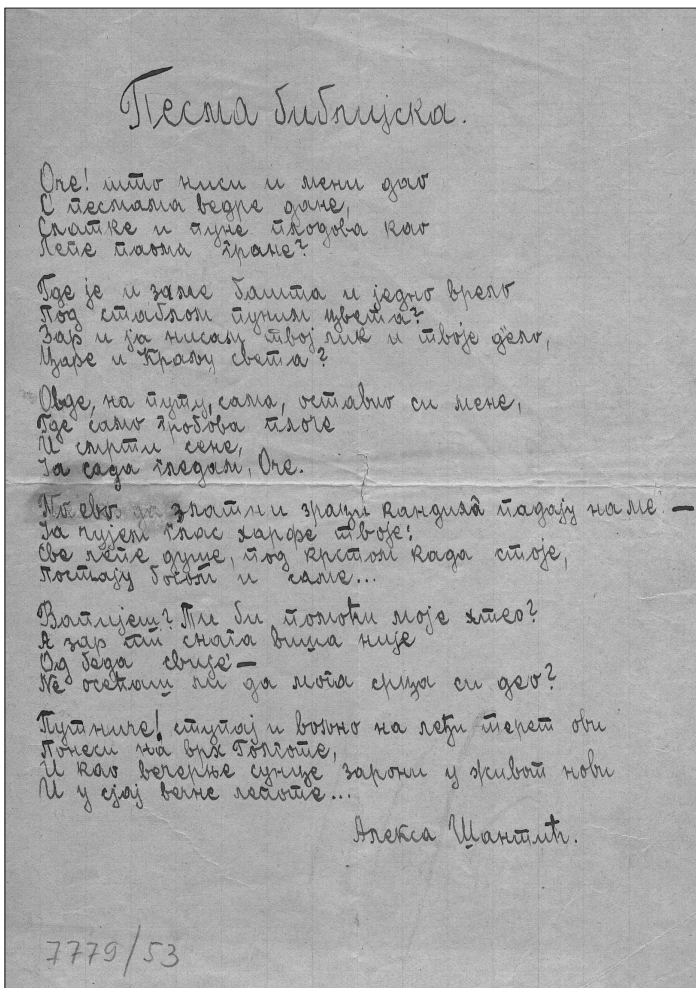 Песма библијска.
Оче! што ниси и мени дао
С песмама ведре дане,
Слатке и пуне плодова као
Лепе палма гране?
Где је и за ме башта и једно врело
Под стаблом пуним цвета?
Зар и ја нисам твој лик и твоје дело,
Царе и Краљу света?
Овде, на путу, сама, оставио си мене,
Где само гробова плоче
И смрти сене,
Ја сада гледам, Оче.
Но ево златни зраци кандила падају на ме —
Ја чујем глас харфе твоје:
Све лепе душе, под крстом када стоје,
Постају богом и саме...
Вапијеш? Ти би помоћи моје хтео?
А зар ти снага виша није
Од беда свију —
Не осећаш ли да мога срца си део?
Путниче! ступај и вољно на леђи терет ови
Понеси на врх Голготе,
И као вечерње сунце зарони у живот нови
И у сјај вечне лепоте...
Алекса Шантић.
7779/53